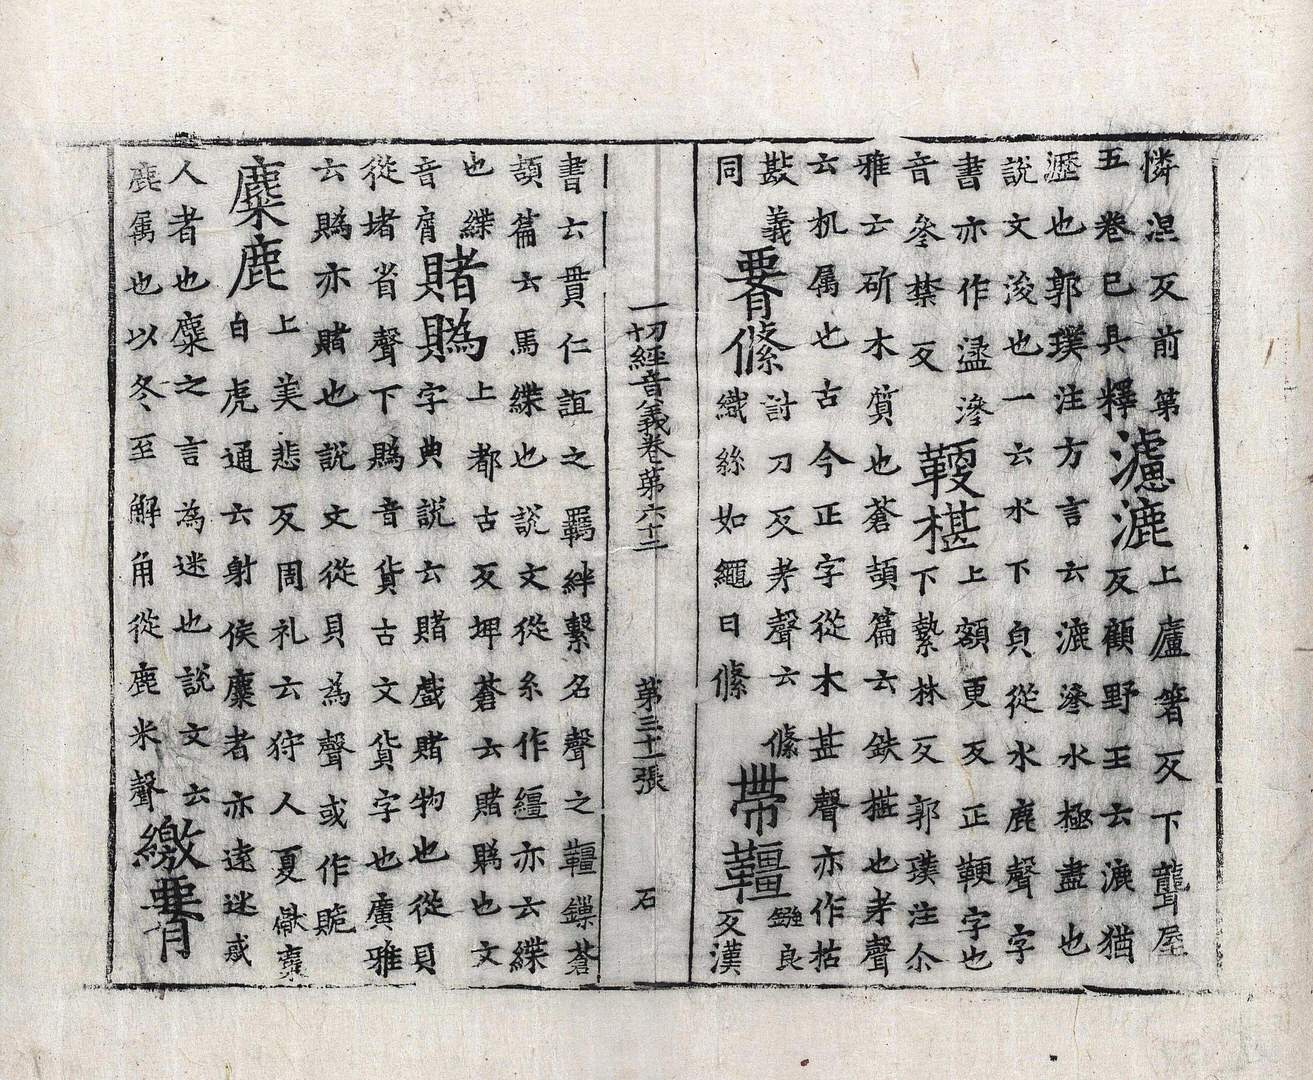 憐涅反前第
五卷已具釋濾漉上廬箸反下聾屋
反顧野王云漉猶
瀝也郭璞注方言云漉滲水極盡也
說文浚也一云水下皃從水鹿聲字
書亦作盝滲
音參禁反鞕椹上額更反正鞕字也
下縶林反郭璞注尒
雅云斫木質也蒼頡篇云鈇椹也考聲
云机属也古今正字從木甚聲亦作枯
同𦝫絛討刀反考聲云絛
織絲如繩曰絛帶韁鏹良
反漢
書云貫仁誼之羈絆繫名聲之韁鏁蒼
頡篇云馬緤也說文從糸作繮亦云緤
也緤
音屑賭賜上都古反埤蒼云賭賜也文
字典說云賭戲賭物也從貝
從堵省聲下賜音貨古文貨字也廣雅
云賜亦賭也說文從貝為聲或作貤
麋鹿上美悲反周礼云狩人夏獻麋
白虎通云射侯麋者亦遠迷惑
人者也麋之言為迷也說文云
鹿属也以冬至解角從鹿米聲繳𦝫
一切經音義卷第六十二　第三十一張　石